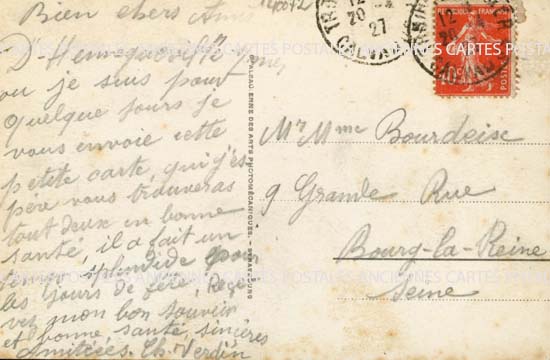 Bien chers Amis
D'Hennequeville
ou je suis pour
quelque jours je
vous envoie cette
petite carte, qui j'es
père vous trouveras
tout deux en bonne
santé, il a fait un
temps splendide pour
les jours de fête, Rece
vez mon bon souvenir
et bonne santé sincères
Amitiées. Ch. Verdin
Mr Mme Bourdeise
9 Grande Rue
Bourg-la-Reine
Seine
PALEAU ENNE DES ARTS PHOTOMÉCANIQUES. - STRASBOURG
12
20
27
CARTES POSTALES ANCIENNES CARTES POSTALES